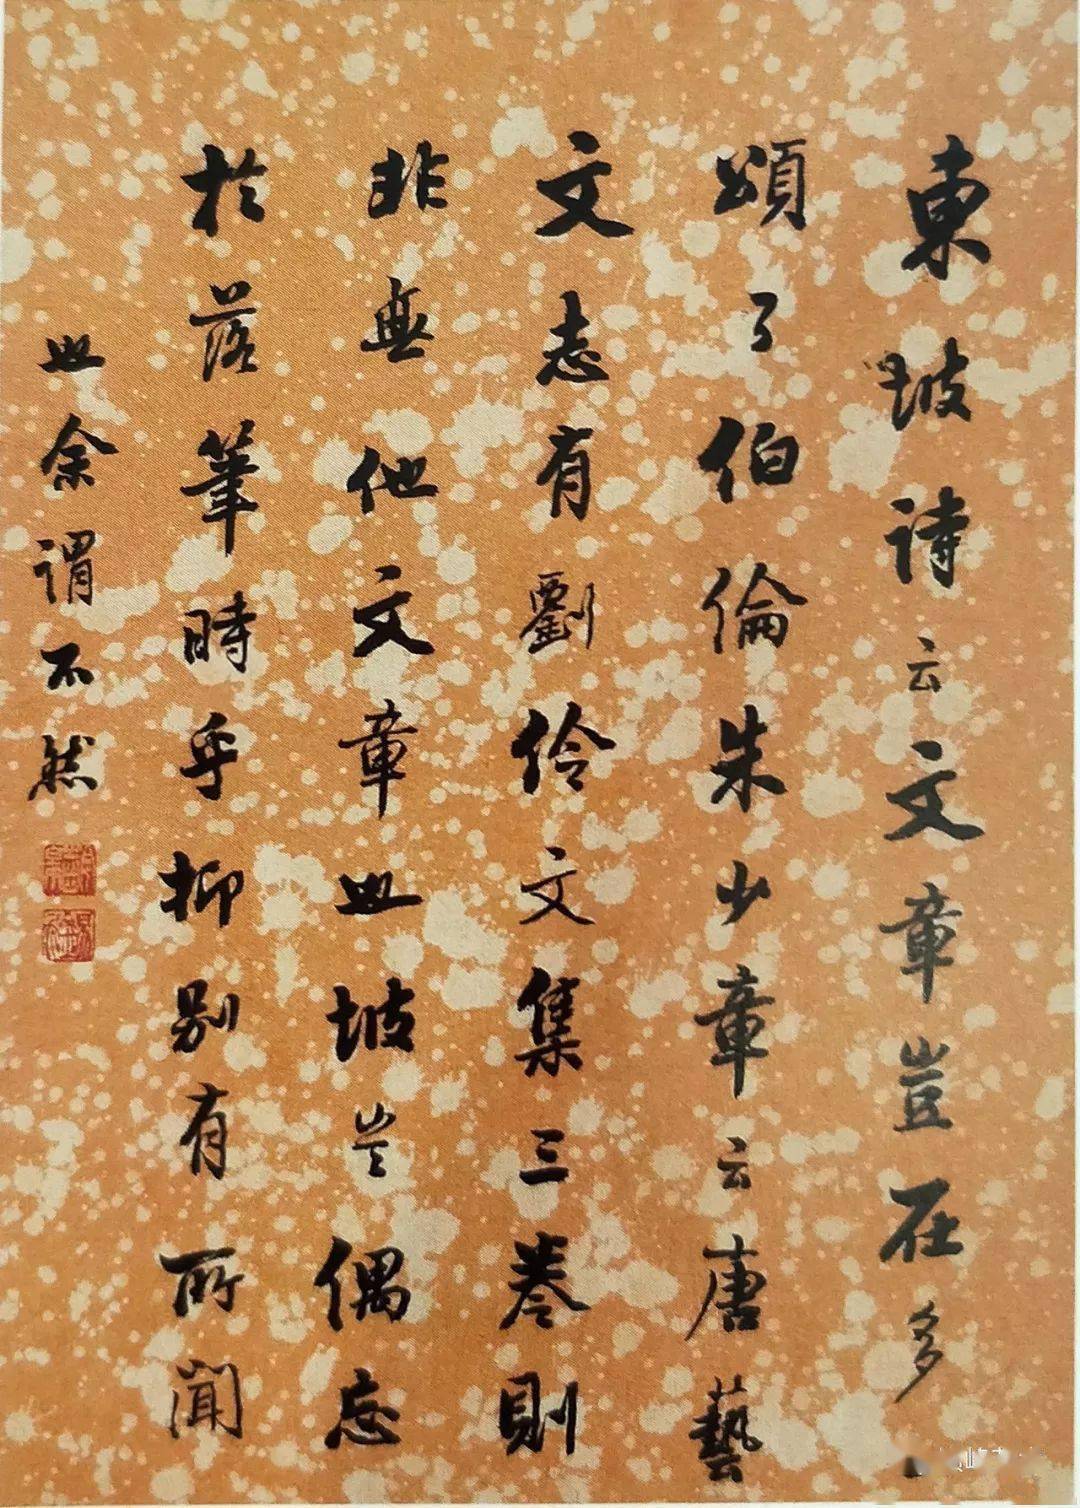 東坡詩云文章豈在多一
頌了伯倫朱少章云唐藝
文志有劉伶文集三卷則
非無他文章也坡豈偶忘
於落筆時乎抑別有所聞
也余謂不然